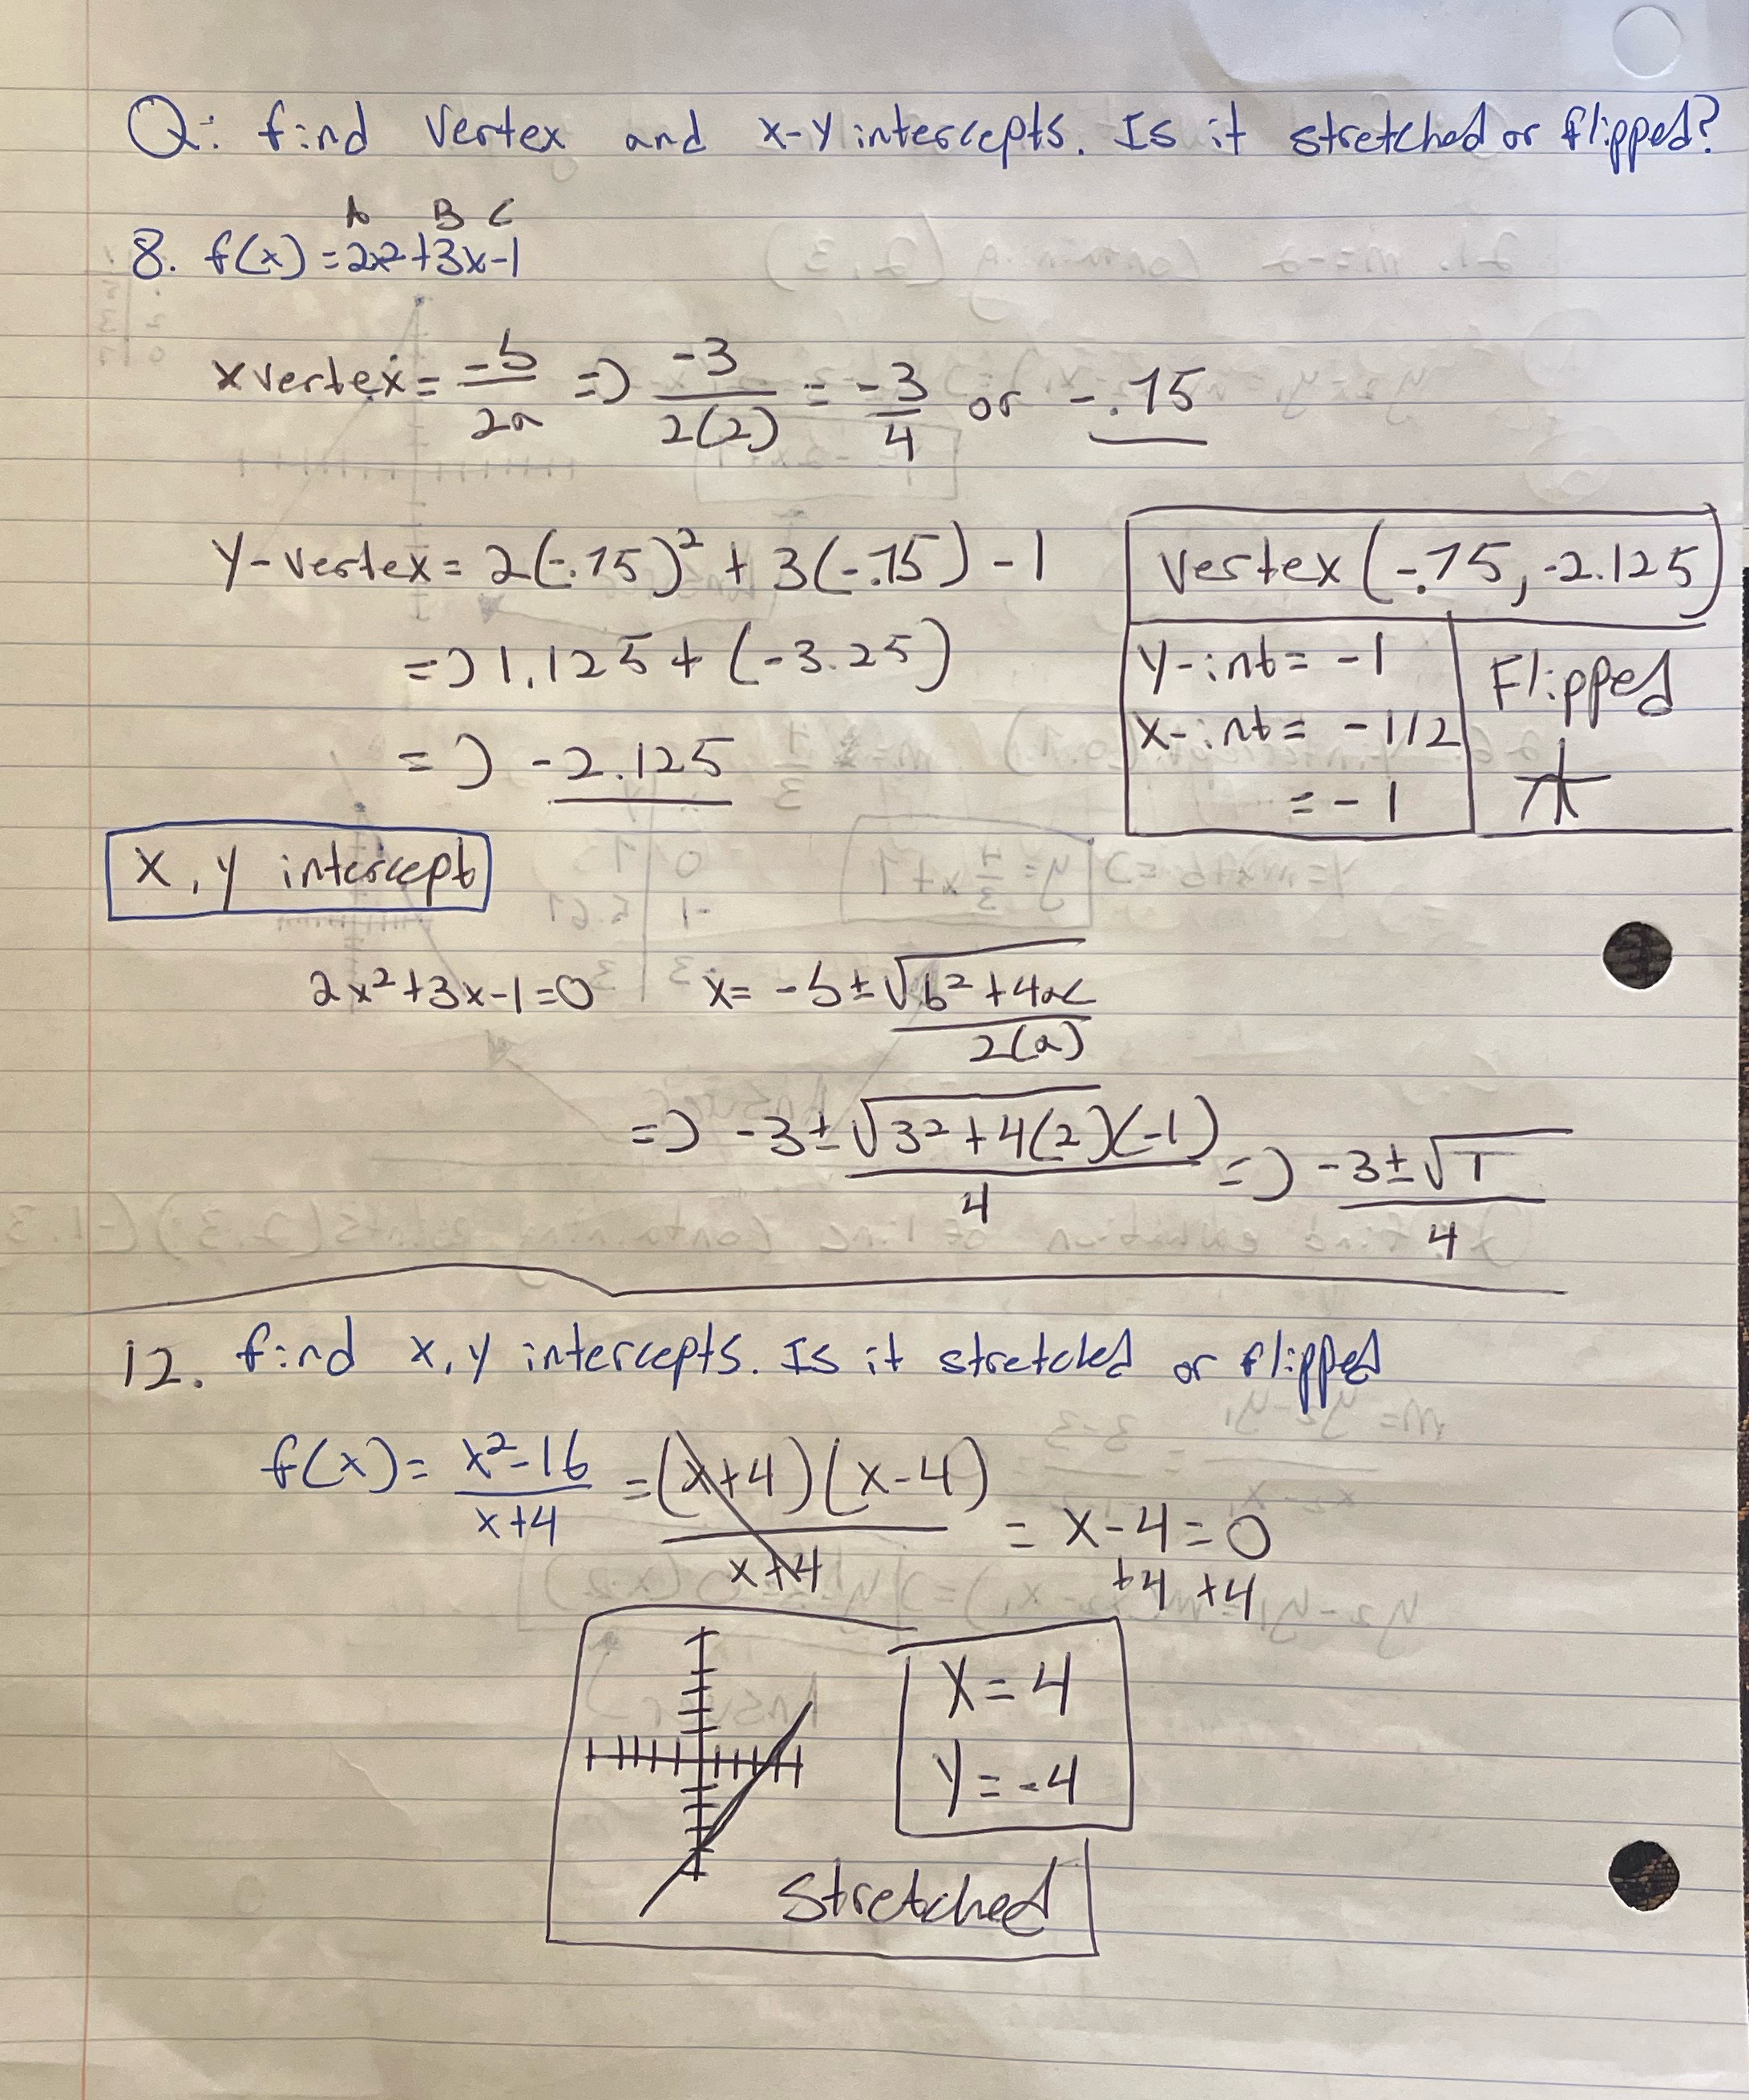 Q: find vertex and x-y intercepts. Is it stretched or flipped?
A B C
8. f(x)=2x²+3x-1
x vertex = -b/2a => -3/2(2) = -3/4 or -.75
y-vertex = 2(-.75)² + 3(-.75) - 1
=> 1.125 + (-3.25)
=> -2.125
vertex (-.75, -2.125)
y-int = -1
x-int = -1/2
= -1
Flipped
x, y intercept
2x²+3x-1=0 x= -b±√b²+4ac/2(a)
=> -3±√3²+4(2)(-1)/4 => -3±√1/4
12. find x, y intercepts. Is it stretched or flipped
f(x)= x²-16/x+4 = (x+4)(x-4)/x+4 = x-4=0
+4 +4
x=4
y=-4
Stretched